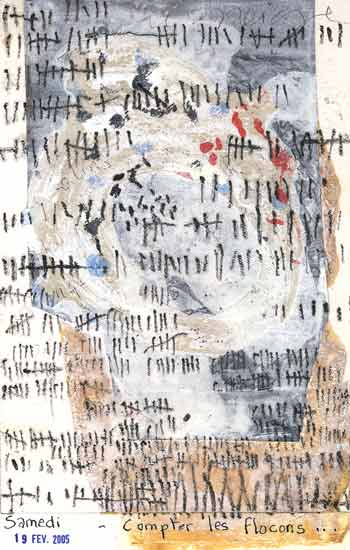 Samedi - Compter les flocons...
19 FEV. 2005